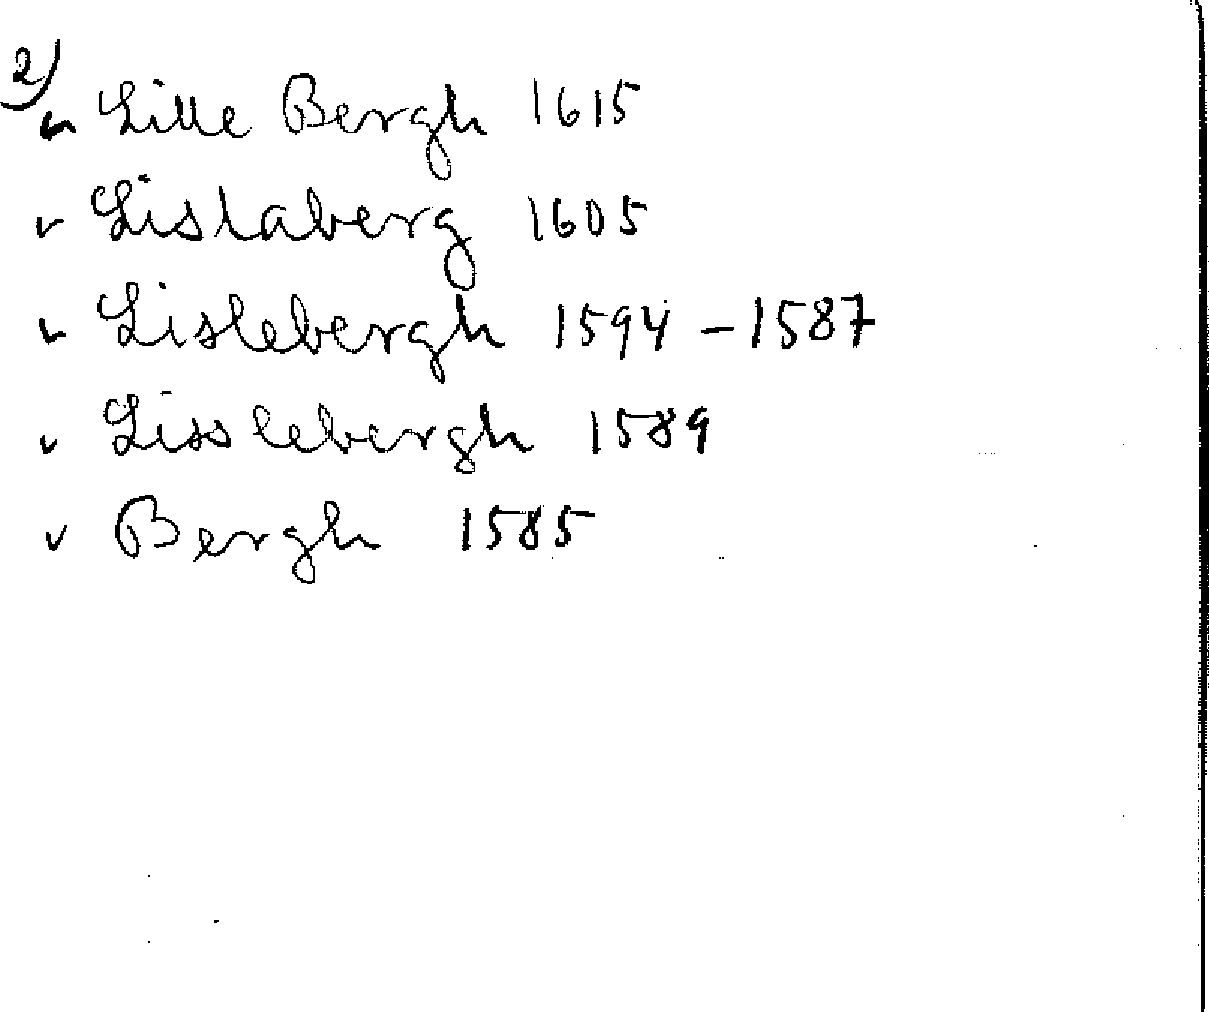 2)
v Lille Bergh 1615
v Lislaberg 1605
v Lislebergh 1594 - 1587
v Lisslebergh 1589
v Bergh 1585